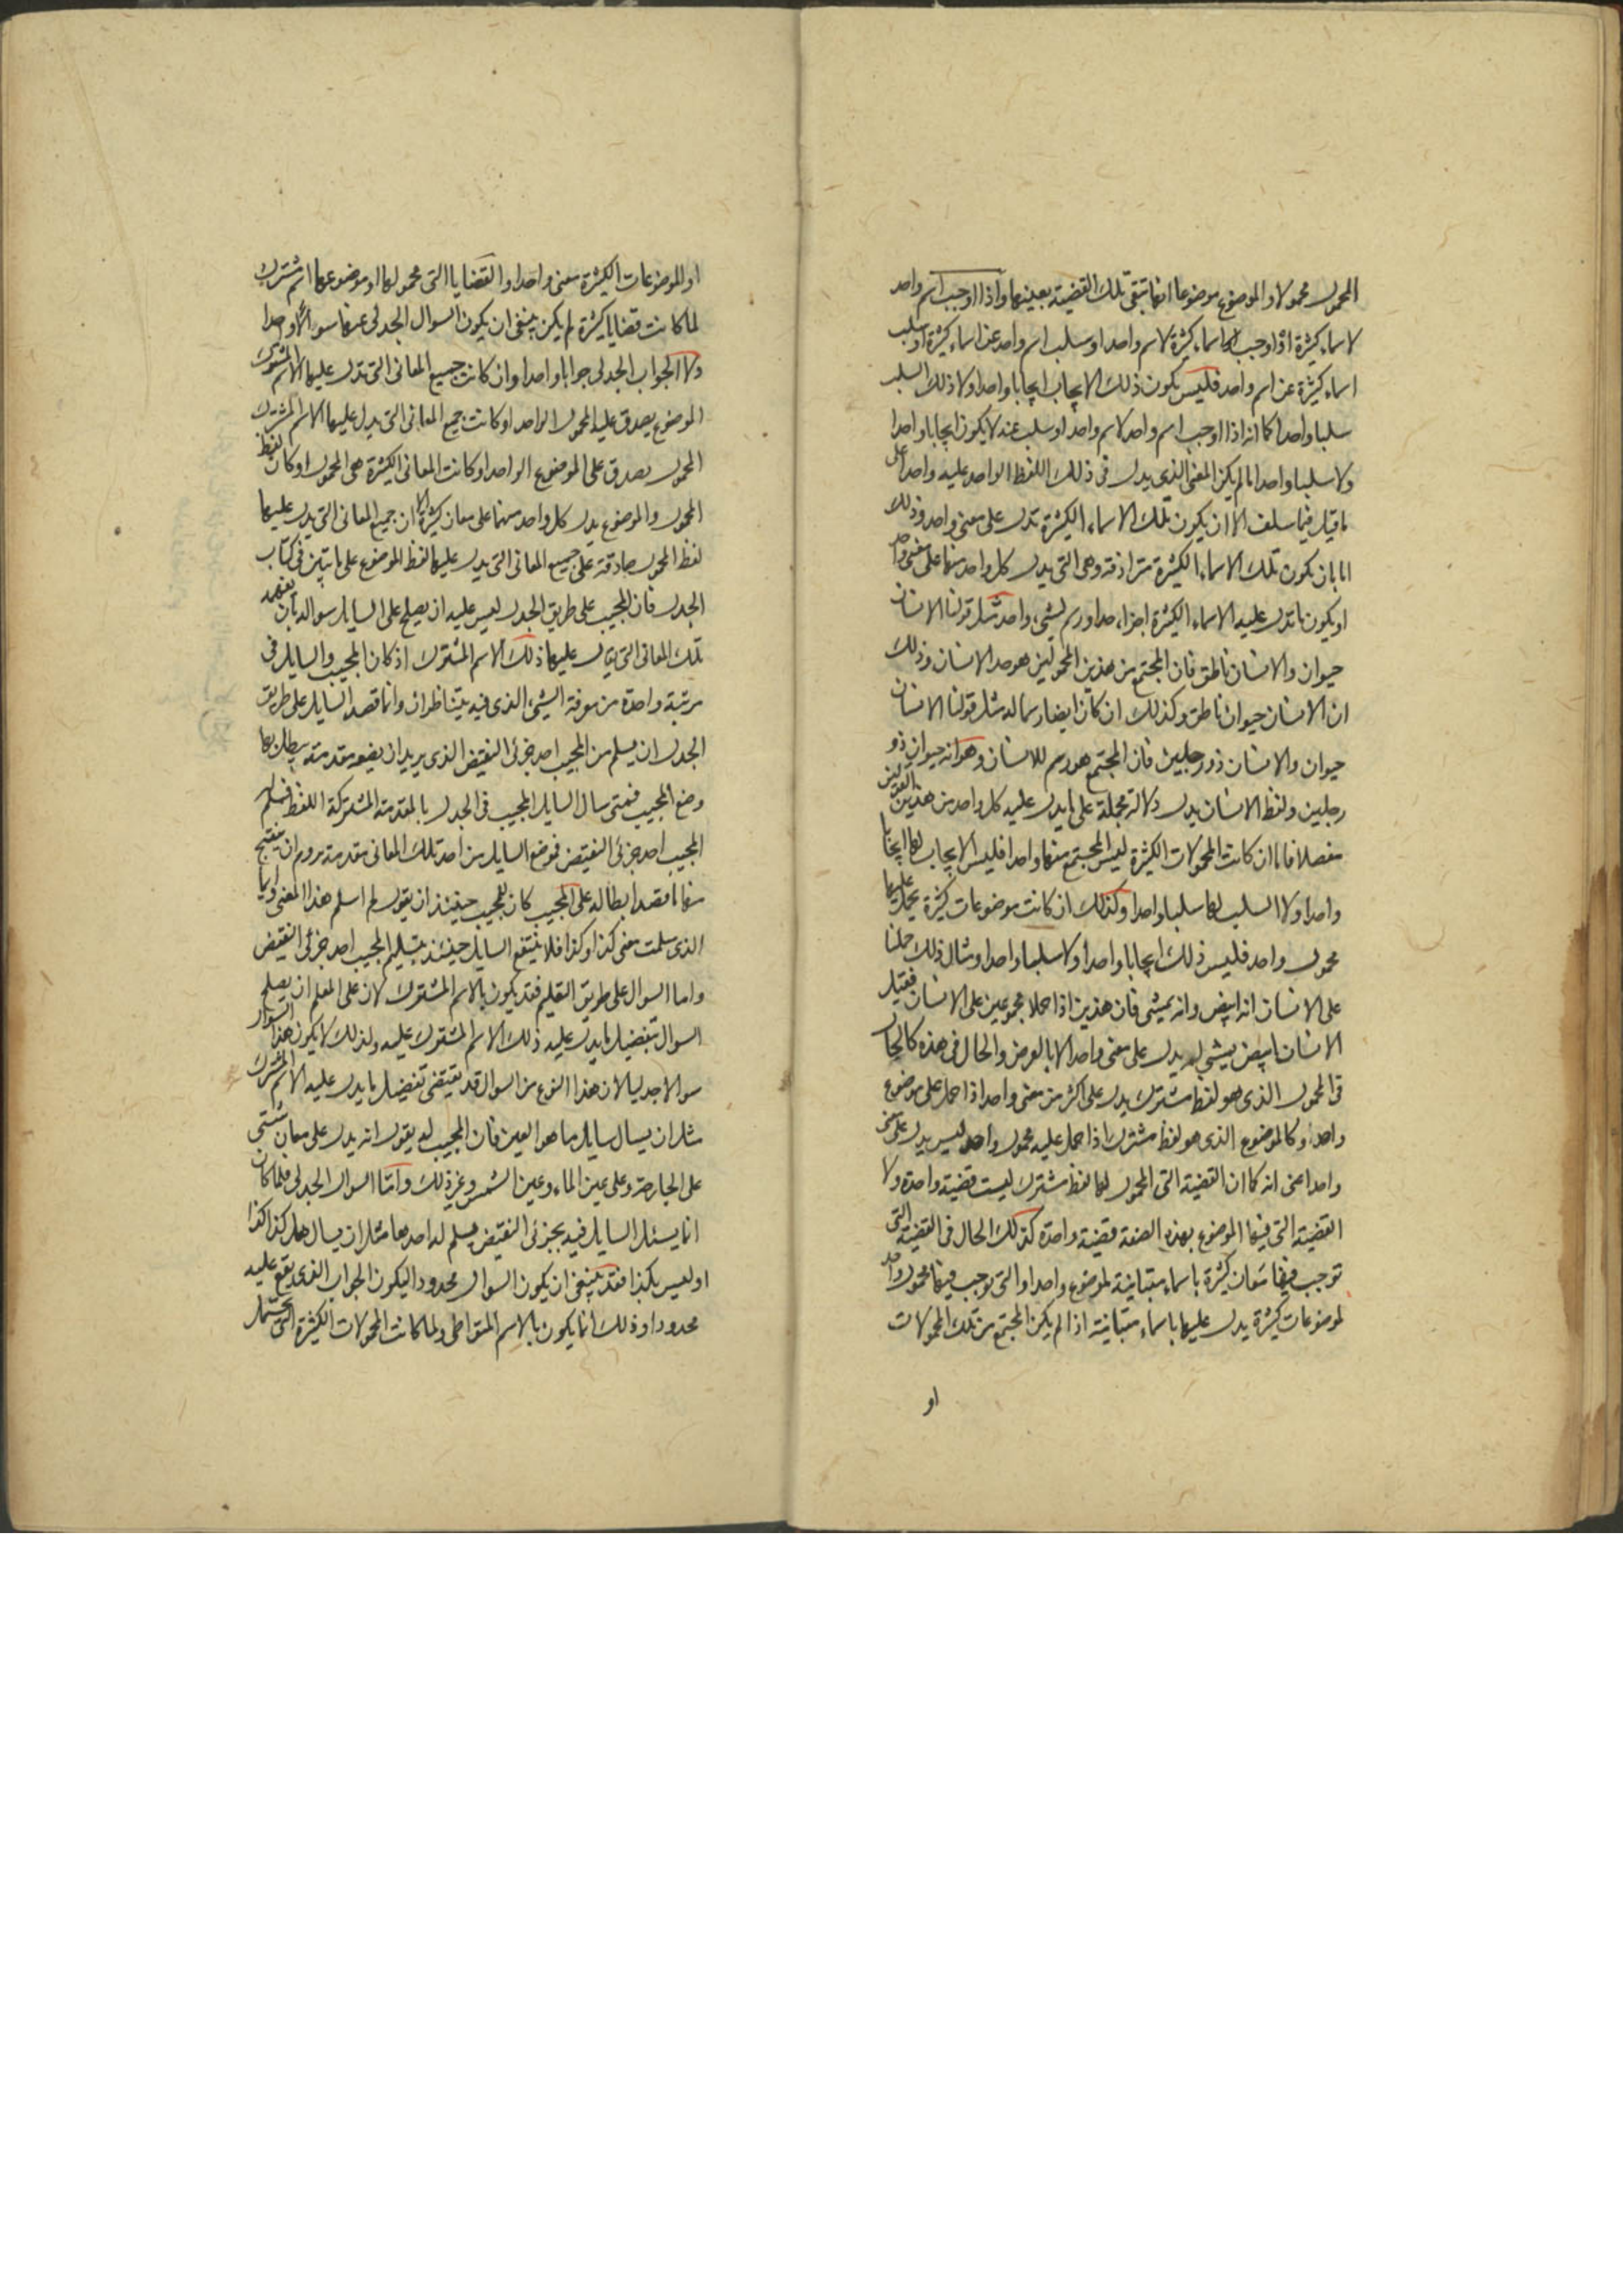 المحمول محمولا والموضوع موضوعا انها تبقى تلك القضية بعينها واذا اوجب اسم واحد
لاسماء كثيرة اذا اوجب اسماء كثيرة لاسم واحد او سلب اسم واحد عن اسماء كثيرة او سلب
اسماء كثيرة عن اسم واحد فليس يكون ذلك الايجاب ايجابا واحدا ولا ذلك السلب
سلبا واحدا كما انه اذا اوجب اسم واحد لاسم واحد او سلب عنه لا يكون ايجابا واحدا
ولا سلبا واحدا ما لم يكن المعنى الذى يدل فى ذلك اللفظ الواحد عليه واحدا على
ما قيل فيما سلف الا ان يكون تلك الاسماء الكثيرة تدل على معنى واحد وذلك
اما بان يكون تلك الاسماء الكثيرة مترادفة وهى التى يدل كل واحد منها على معنى واحد
او يكون ما تدل عليه الاسماء الكثيرة اجزاء حد او رسم لشىء واحد مثل قولنا الانسان
حيوان والانسان ناطق فان المجتمع من هذين المحمولين هو حد الانسان وذلك
ان الانسان حيوان ناطق وكذلك ان كان ايضا رسما له مثل قولنا الانسان
حيوان والانسان ذو رجلين فان المجتمع هو رسم للانسان وهو انه حيوان ذو
رجلين ولفظ الانسان يدل دلالة مجملة على ما يدل عليه كل واحد من هذين القولين
مفصلا فاما ان كانت المحمولات الكثيرة ليس المجتمع منها واحدا فليس الايجاب لها ايجابا
واحدا ولا السلب لها سلبا واحدا وكذلك ان كانت موضوعات كثيرة يحمل عليها
محمول واحد فليس ذلك ايجابا واحدا ولا سلبا واحدا ومثال ذلك حملنا
على الانسان انه ابيض وانه يمشى فان هذين اذا حملا مجموعين على الانسان فقيل
الانسان ابيض يمشى لم يدل على معنى واحد الا بالعرض والحال فى هذه كالحال
فى المحمول الذى هو لفظ مشترك يدل على اكثر من معنى واحد اذا حمل على موضوع
واحد وكالموضوع الذى هو لفظ مشترك اذا حمل عليه محمول واحد ليس يدل على معنى
واحد اعنى انه كما ان القضية التى المحمول لها لفظ مشترك ليست قضية واحدة ولا
القضية التى فيها الموضوع بهذه الصفة قضية واحدة كذلك الحال فى القضية التى
توجب فيها معان كثيرة باسماء متباينة لموضوع واحد او التى توجب فيها محمول واحد
لموضوعات كثيرة يدل عليها باسماء متباينة اذا لم يكن المجتمع من تلك المحمولات
او
او الموضوعات الكثيرة معنى واحدا والقضايا التى محمولها او موضوعها اسم مشترك
لما كانت قضايا كثيرة لم يكن ينبغى ان يكون السوال الجدلى عنها سوالا واحدا
ولا الجواب الجدلى جوابا واحدا وان كانت جميع المعانى التى تدل عليها الاسم المشترك
الموضوع يصدق عليه المحمول الواحد او كانت جميع المعانى التى يدل عليها الاسم المشترك
المحمول يصدق على الموضوع الواحد او كانت المعانى الكثيرة هى المحمول او كان لفظ
المحمول والموضوع يدل كل واحد منهما على معان كثيرة الا ان جميع المعانى التى يدل عليها
لفظ المحمول صادقة على جميع المعانى التى يدل عليها لفظ الموضوع على ما تبين فى كتاب
الجدل فان للمجيب على طريق الجدل ليس عليه ان يصلح على السايل سواله بان يفهمه
تلك المعانى التى يقال عليها ذلك الاسم المشترك اذ كان المجيب والسايل فى
مرتبة واحدة من معرفة الشىء الذى فيه يتناظران وانما قصد السايل على طريق
الجدل ان يسلم من المجيب احد جزئى النقيض الذى يريد ان يضعه مقدمة يبطل بها
وضع المجيب فمتى سال السايل المجيب فى الجدل بالمقدمة المشتركة اللفظ فسلم
المجيب احد جزئى النقيض فوضع السايل من احد تلك المعانى مقدمة يروم ان ينتج
منها ما قصد ابطاله على المجيب كان للمجيب حينئذ ان يقول لم اسلم هذا المعنى وانما
الذى سلمت معنى كذا وكذا فلا ينتفع السايل حينئذ بتسليم المجيب احد جزئى النقيض
واما السوال على طريق التعليم فقد يكون بالاسم المشترك لان على المعلم ان يصلح
السوال بتفصيل ما يدل عليه ذلك الاسم المشترك عليه ولذلك لا يكون هذا السوال
سوالا جدليا لان هذا النوع من السوال قد يقتضى تفصيل ما يدل عليه الاسم المشترك
مثل ان يسال سايل ما هو العين فان المجيب له يقول انه يدل على معان شتى
على الجارحة وعلى عين الماء وعين الشمس وغير ذلك واما السوال الجدلى فلما كان
انما يسئل السايل فيه بجزئى النقيض ليسلم له احدهما مثل ان يسال هل كذا كذا
او ليس بكذا فقد ينبغى ان يكون السوال محدودا ليكون الجواب الذى يقع عليه
محدودا وذلك انما يكون بالاسم المتواطى ولما كانت المحمولات الكثيرة التى تحمل